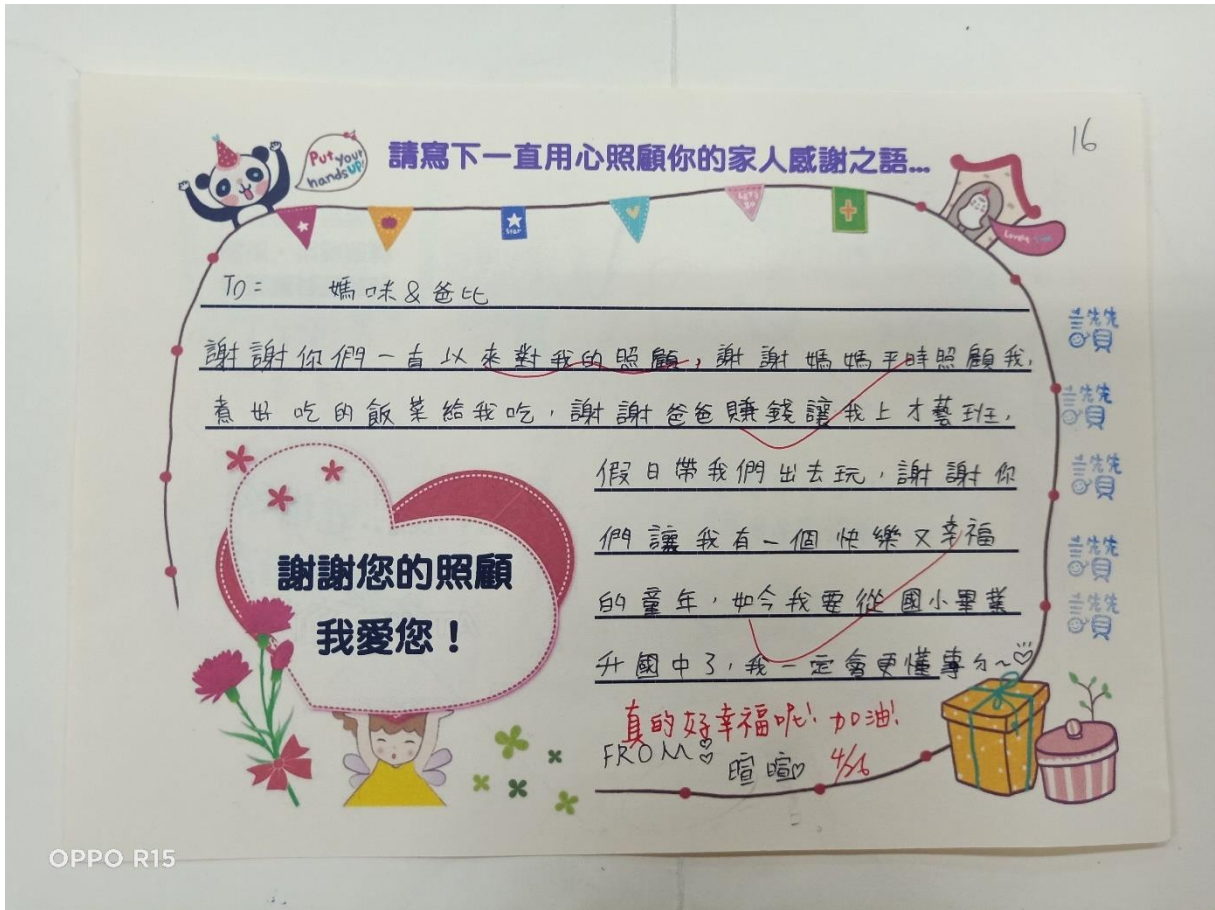 16
Put your
hands up!
請寫下一直用心照顧你的家人感謝之語...
Star
Let's
Go
Lovely
TO: 媽咪&爸比
謝謝你們一直以來對我的照顧,謝謝媽媽平時照顧我,
煮好吃的飯菜給我吃,謝謝爸爸賺錢讓我上才藝班,
假日帶我們出去玩,謝謝你
們讓我有一個快樂又幸福
的童年,如今我要從國小畢業
升國中了,我一定會更懂事ㄉ~♡
謝謝您的照顧
我愛您!
真的好幸福呢!加油!
FROM♡
暄暄♡ 4/26
讚
讚
讚
讚
讚
OPPO R15